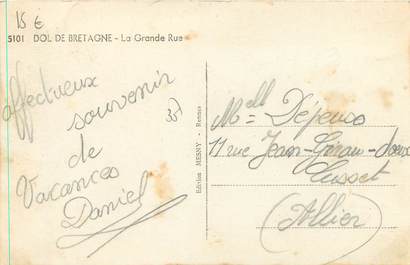 15 €
5101 DOL DE BRETAGNE - La Grande Rue
affectueux
souvenir
de
Vacances
Daniel
35
Edition MESNY - Rennes
Mell Déjenso
11 rue Jean-Girau-doux
Cusset
Allier